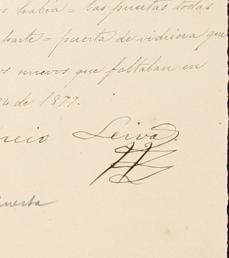 s habia = las puertas todas
parte = puerta de vidriera que
os nuevos que faltaban en
24 de 1877.
recio Leiva
uerta